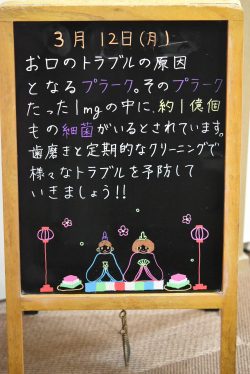 3月12日(月)
お口のトラブルの原因
となるプラーク。そのプラーク
たった1mgの中に、約1億個
もの細菌がいるとされています。
歯磨きと定期的なクリーニングで
様々なトラブルを予防して
いきましょう!!